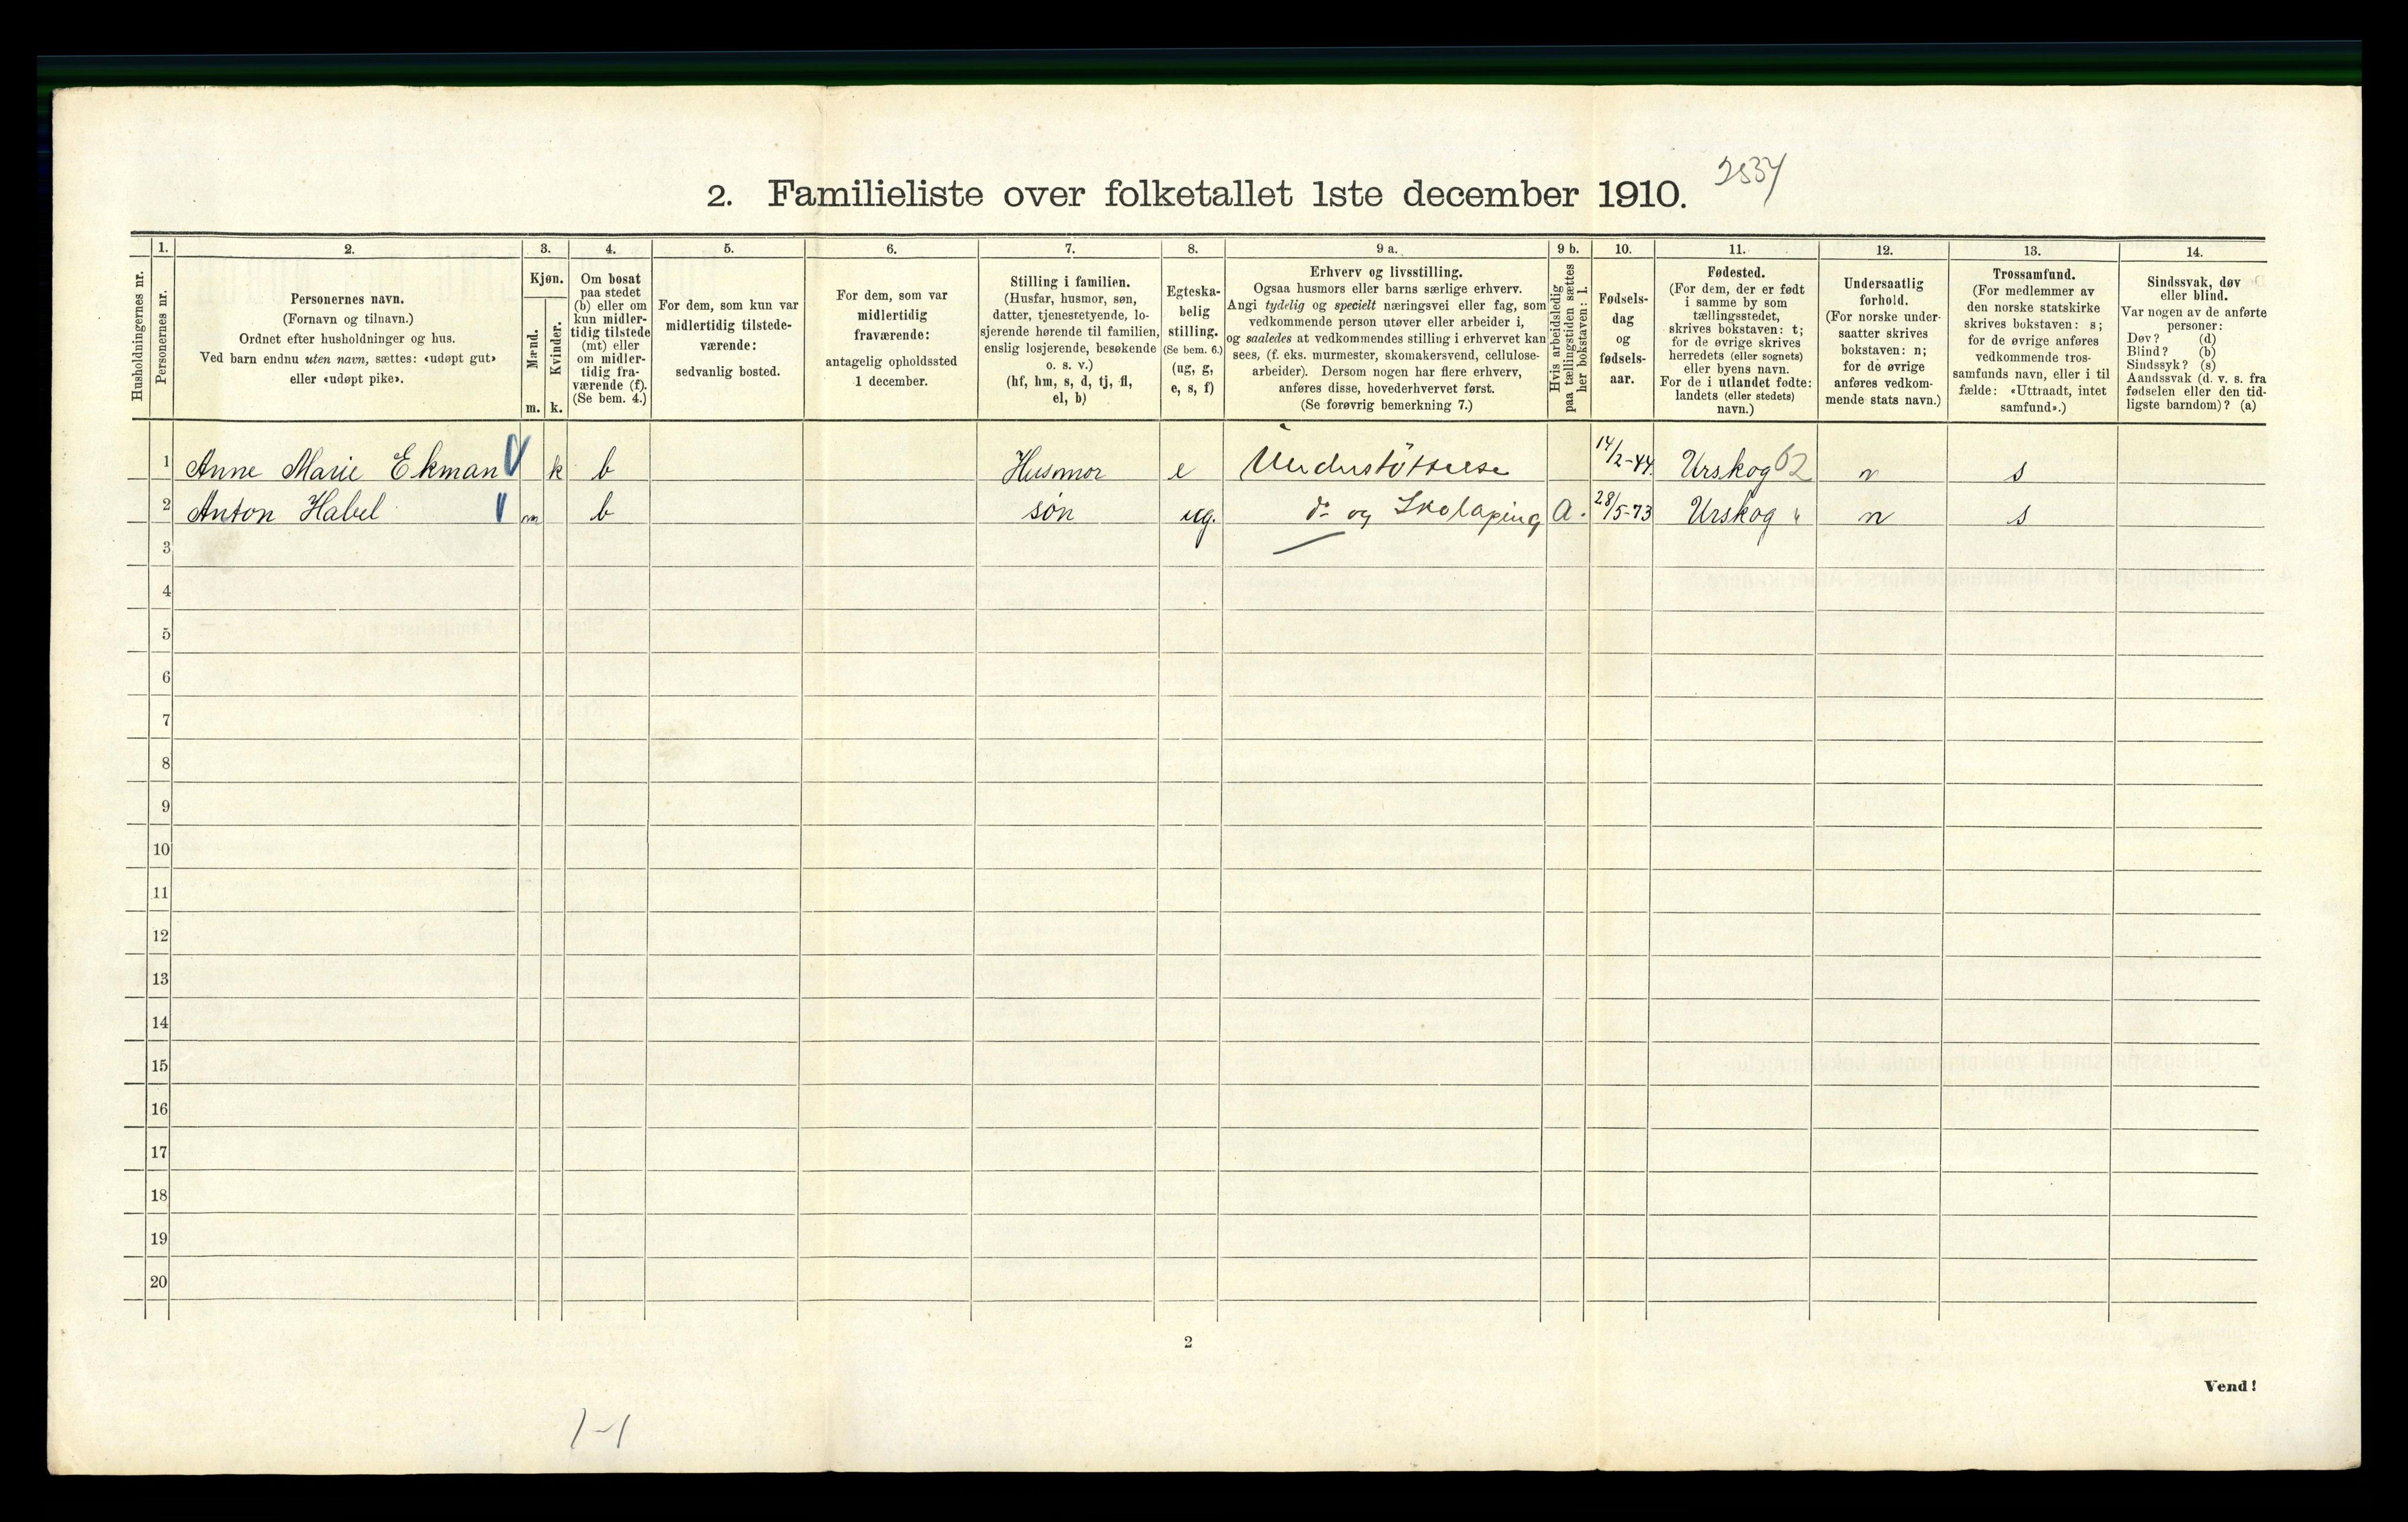 2537
2. Familieliste over folketallet 1ste december 1910.
Husholdningernes nr.
1.
Personernes nr.
2.
Personernes navn.
(Fornavn og tilnavn.)
Ordnet efter husholdninger og hus.
Ved barn endnu uten navn, sættes: «udøpt gut»
eller «udøpt pike».
3.
Kjøn.
Mænd.
Kvinder.
m. k.
4.
Om bosat
paa stedet
(b) eller om
kun midler-
tidig tilstede
(mt) eller
om midler-
tidig fra-
værende (f).
(Se bem. 4.)
5.
For dem, som kun var
midlertidig tilstede-
værende:
sedvanlig bosted.
6.
For dem, som var
midlertidig
fraværende:
antagelig opholdssted
1 december.
7.
Stilling i familien.
(Husfar, husmor, søn,
datter, tjenestetyende, lo-
sjerende hørende til familien,
enslig losjerende, besøkende
o. s. v.)
(hf, hm, s, d, tj, fl,
el, b)
8.
Egteska-
belig
stilling.
(Se bem. 6.)
(ug, g,
e, s, f)
9 a.
Erhverv og livsstilling.
Ogsaa husmors eller barns særlige erhverv.
Angi tydelig og specielt næringsvei eller fag, som
vedkommende person utøver eller arbeider i,
og saaledes at vedkommendes stilling i erhvervet kan
sees, (f. eks. murmester, skomakersvend, cellulose-
arbeider). Dersom nogen har flere erhverv,
anføres disse, hovederhvervet først.
(Se forøvrig bemerkning 7.)
9 b.
Hvis arbeidsledig
paa tællingstiden sættes
her bokstaven: l.
10.
Fødsels-
dag
og
fødsels-
aar.
11.
Fødested.
(For dem, der er født
i samme by som
tællingsstedet,
skrives bokstaven: t;
for de øvrige skrives
herredets (eller sognets)
eller byens navn.
For de i utlandet fødte:
landets (eller stedets)
navn.)
12.
Undersaatlig
forhold.
(For norske under-
saatter skrives
bokstaven: n;
for de øvrige
anføres vedkom-
mende stats navn.)
13.
Trossamfund.
(For medlemmer av
den norske statskirke
skrives bokstaven: s;
for de øvrige anføres
vedkommende tros-
samfunds navn, eller i til
fælde: «Uttraadt, intet
samfund».)
14.
Sindssvak, døv
eller blind.
Var nogen av de anførte
personer:
Døv? (d)
Blind? (b)
Sindssyk? (s)
Aandssvak (d. v. s. fra
fødselen eller den tid-
ligste barndom)? (a)
1 Anne Marie Ekman k b Husmor e Understöttelse 14/2-44. Urskog 62 n s
2 Anton Habel m b søn ug. do og A. 28/5-73 Urskog " n s
3
4
5
6
7
8
9
10
11
12
13
14
15
16
17
18
19
20
2
Vend!
1-1